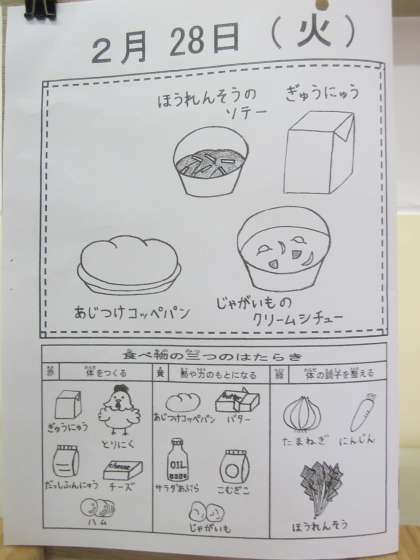 2月 28日 (火)
ほうれんそうの
ソテー
ぎゅうにゅう
あじつけコッペパン
じゃがいもの
クリームシチュー
食べ物の三つのはたらき
赤 体をつくる
ぎゅうにゅう
とりにく
だっしふんにゅう
チーズ
ハム
黄 熱や力のもとになる
あじつけコッペパン
バター
OIL
サラダあぶら
こむぎこ
じゃがいも
緑 体の調子を整える
たまねぎ
にんじん
ほうれんそう